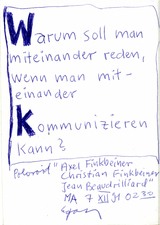 Warum soll man
miteinander reden,
wenn man mit-
einander
Kommunizieren
Kann?
Polaroid "Axel Finkbeiner
Christian Finkbeiner
Jean Beaudrilliard"
MA 7 XII 91 0230